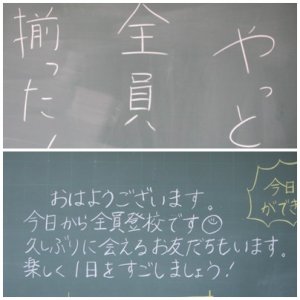 やっと
全員
揃った!
おはようございます。
今日から全員登校です☺
久しぶりに会えるお友だちもいます。
楽しく1日をすごしましょう!
今日
ができ